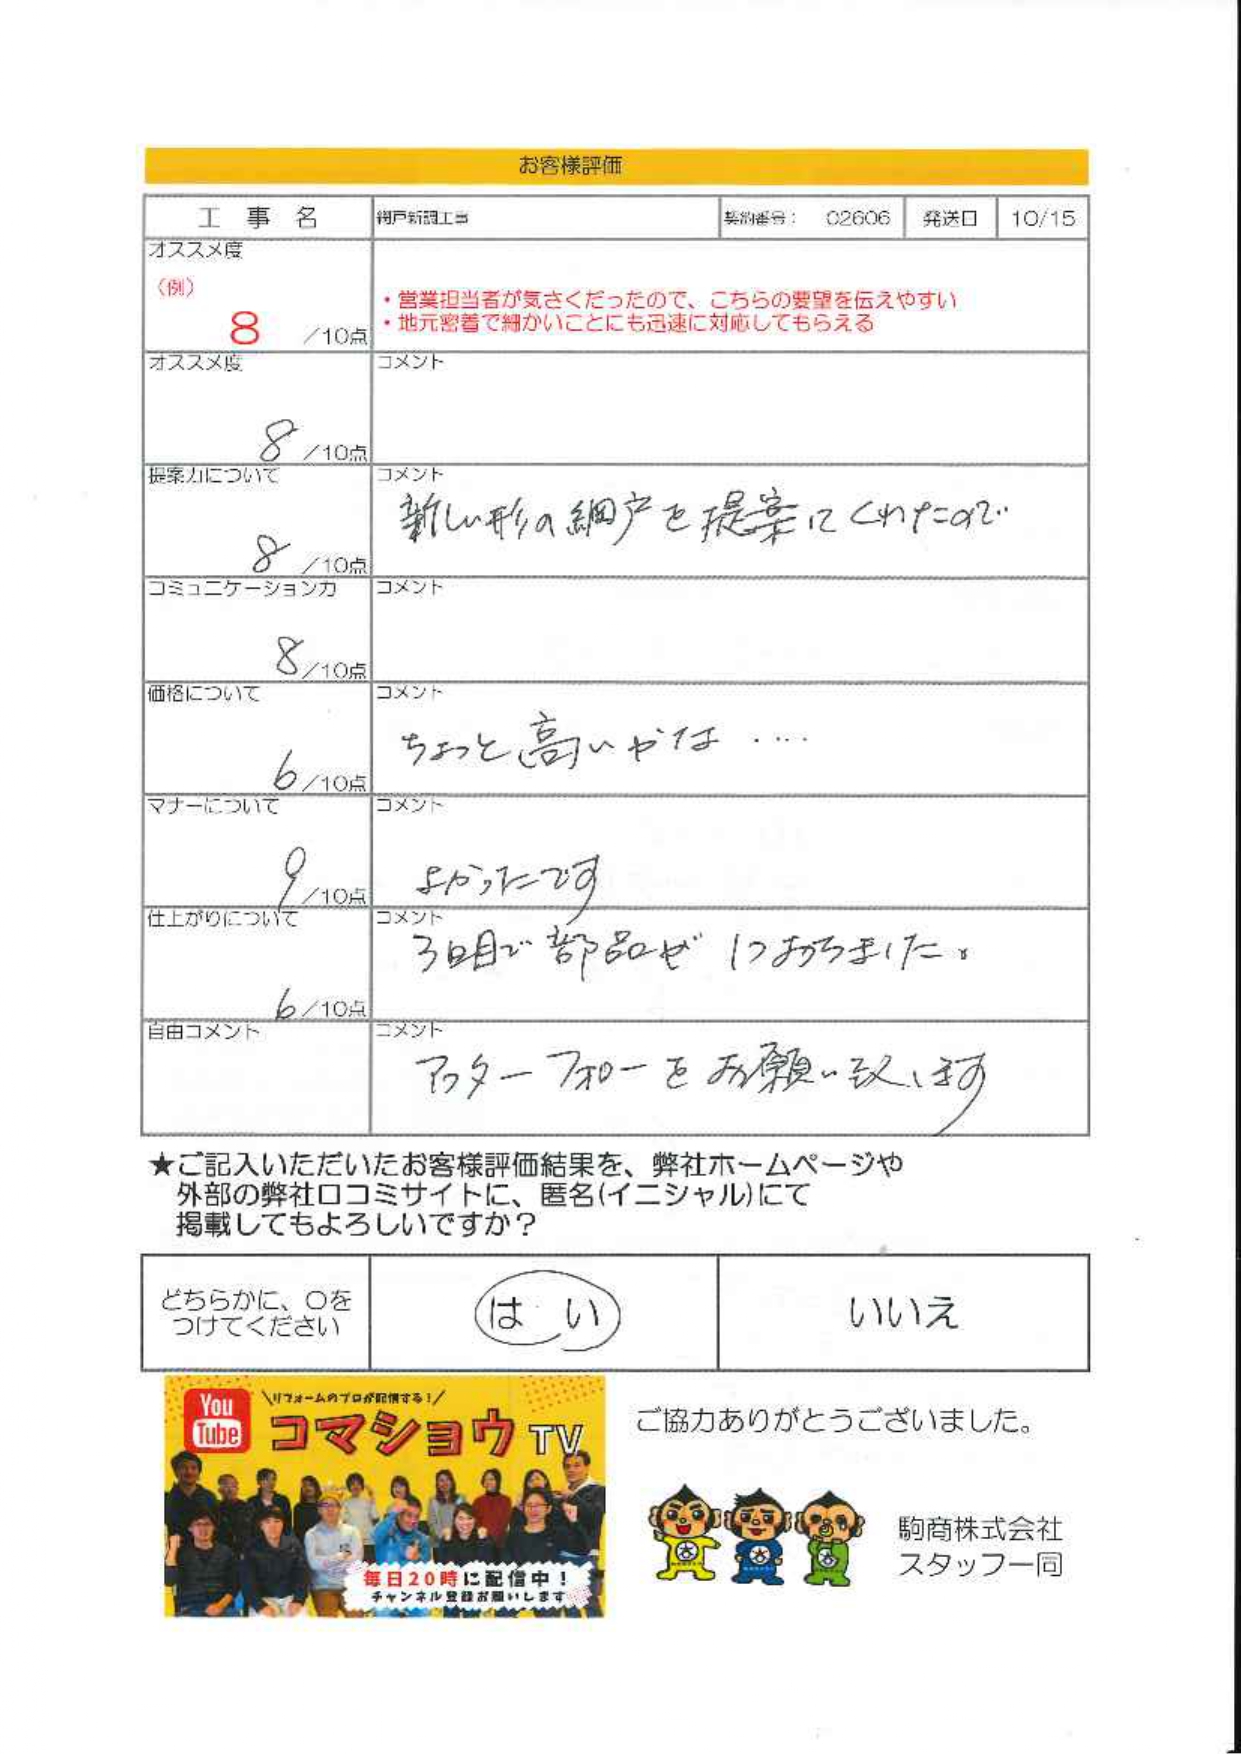 お客様評価
工事名 網戸新調工事 契約番号： 02606 発送日 10/15
オススメ度
（例）
8 ／10点
・営業担当者が気さくだったので、こちらの要望を伝えやすい
・地元密着で細かいことにも迅速に対応してもらえる
オススメ度 コメント
8 ／10点
提案力について コメント
新しい形の網戸を提案してくれたので
8 ／10点
コミュニケーション力 コメント
8 ／10点
価格について コメント
ちょっと高いかな ‥‥
6 ／10点
マナーについて コメント
よかったです
9 ／10点
仕上がりについて コメント
3日目で部品が1つおちました。
6 ／10点
自由コメント コメント
アフターフォローをお願い致します
★ご記入いただいたお客様評価結果を、弊社ホームページや
外部の弊社口コミサイトに、匿名(イニシャル)にて
掲載してもよろしいですか？
どちらかに、〇を
つけてください
はい いいえ
You
Tube
＼リフォームのプロが配信する！／
コマショウTV
毎日20時に配信中！
チャンネル登録お願いします
ご協力ありがとうございました。
駒商株式会社
スタッフ一同